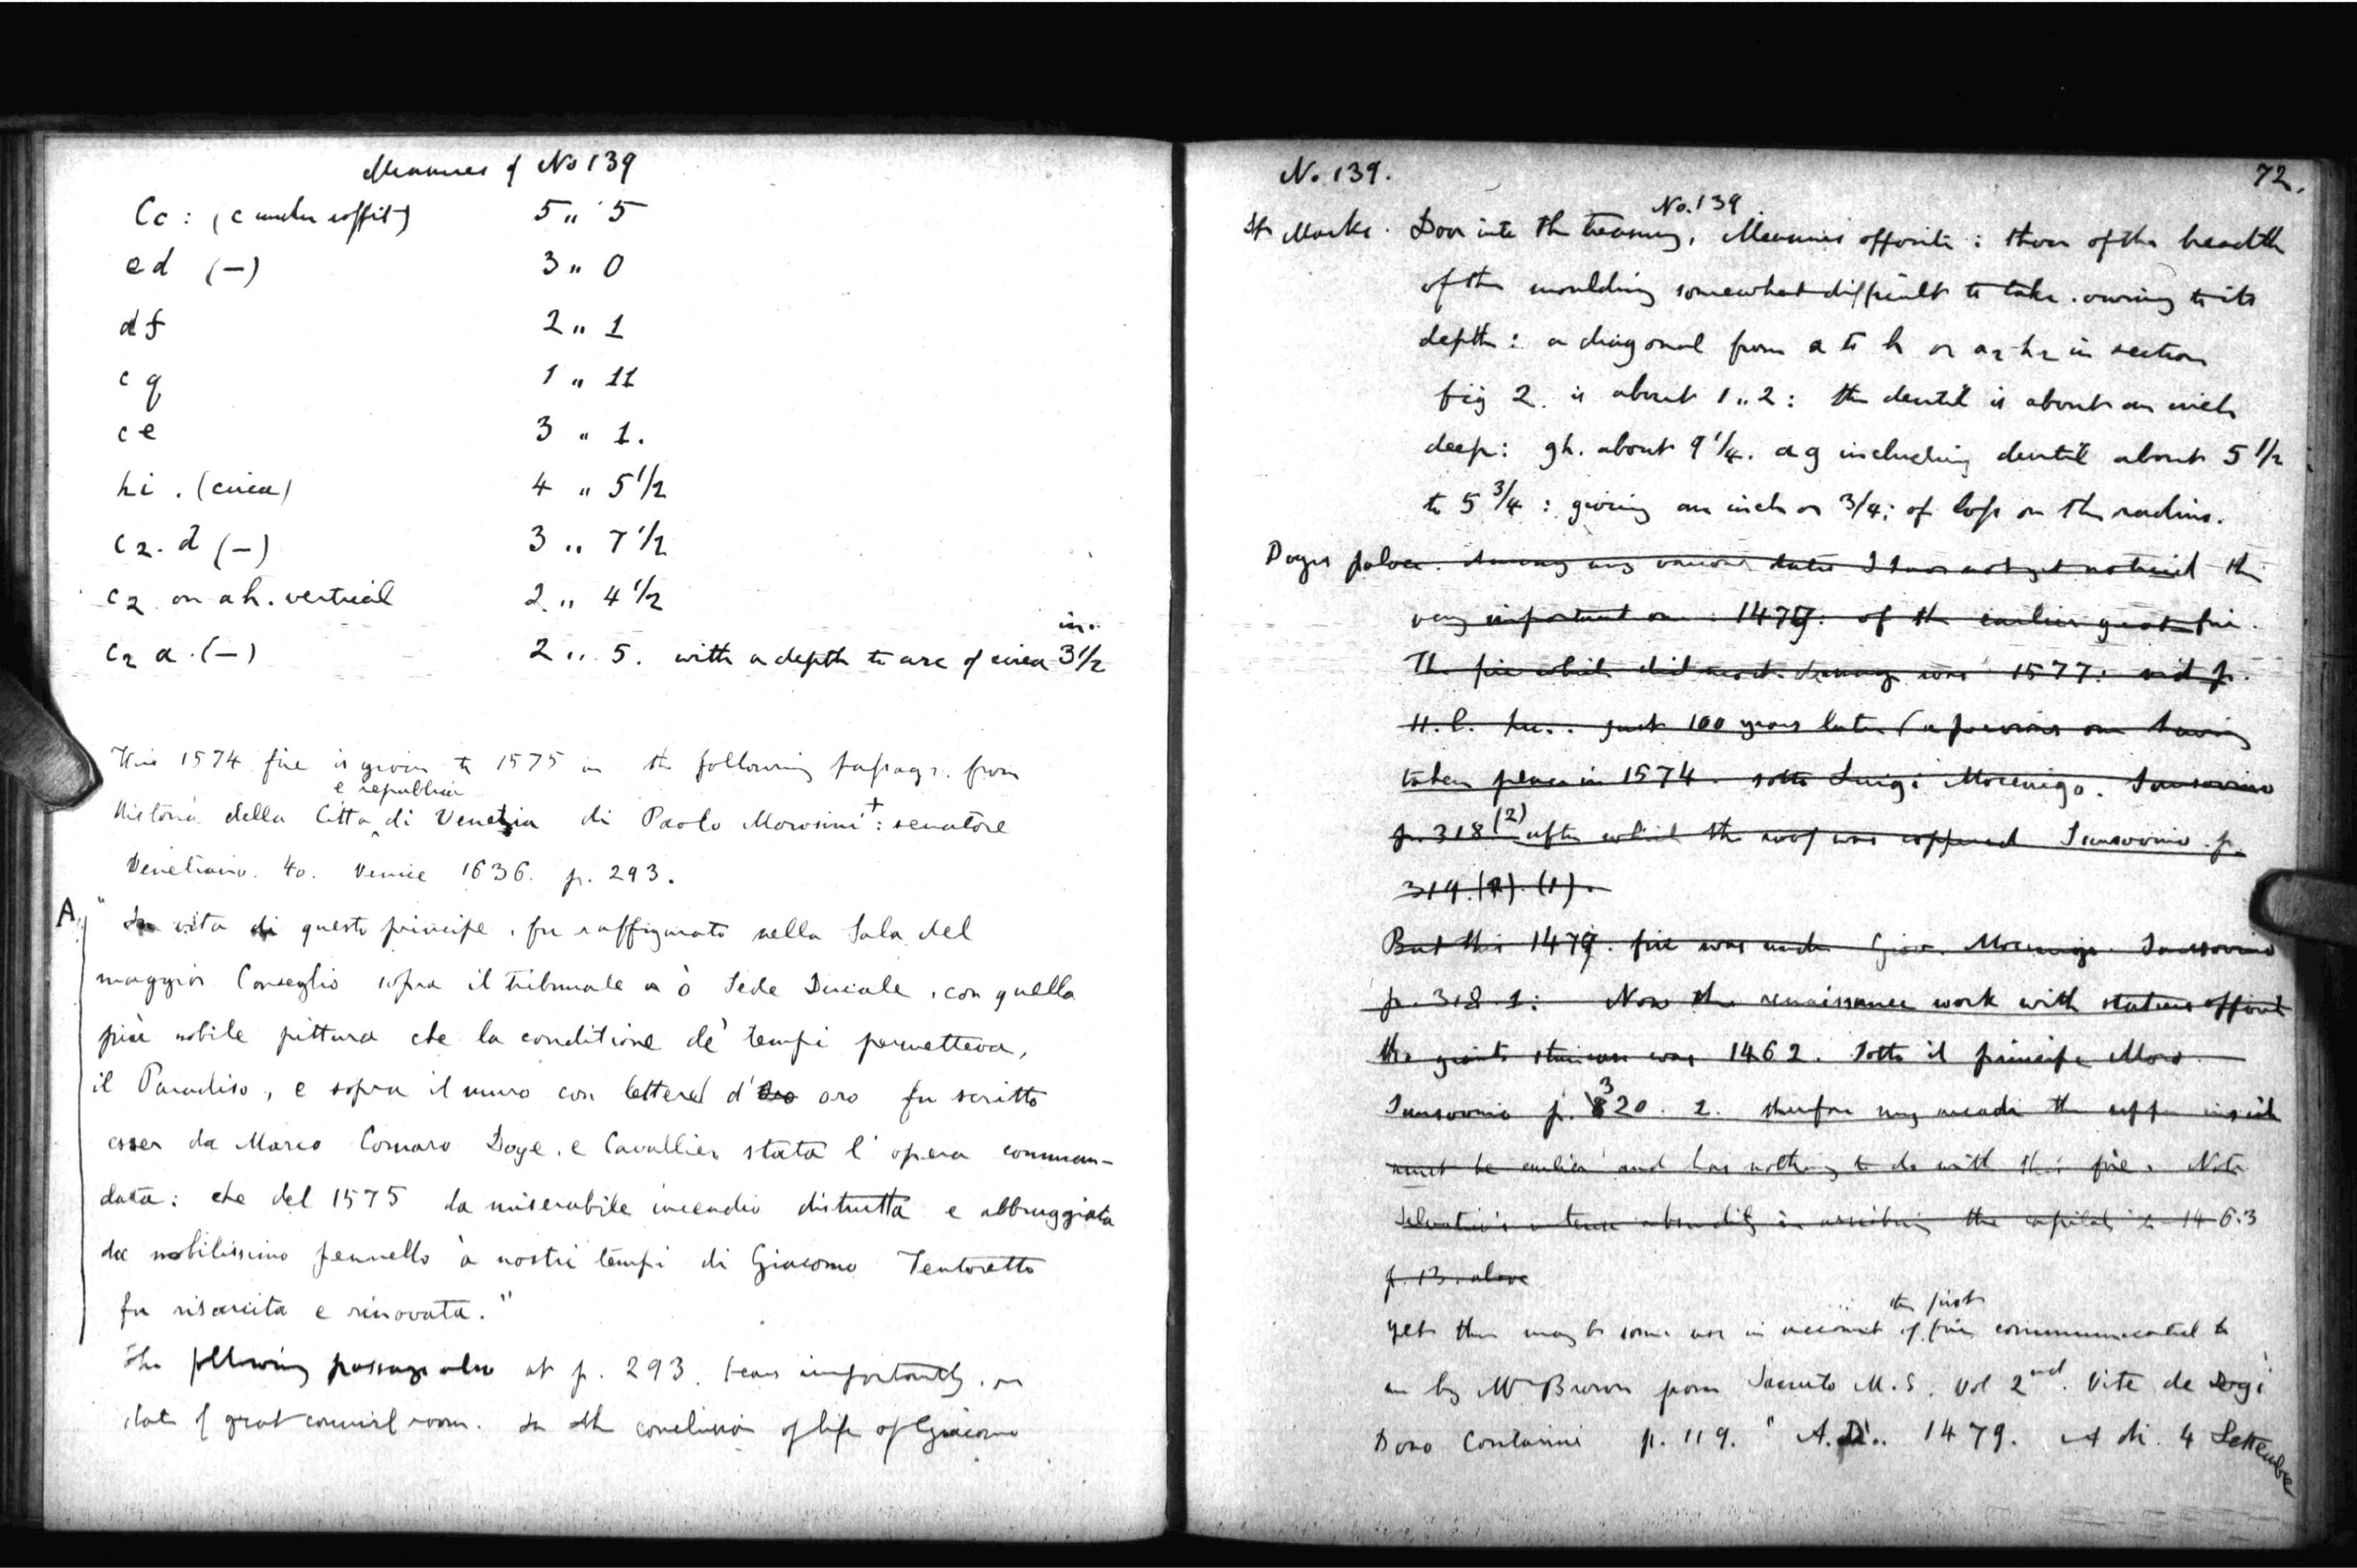 Measures of No 139
Cc : (c under soffit) 5 " 5
ed (—) 3 " 0
df 2 " 1
c q 1 " 11
ce 3 " 1.
hi . (circa) 4 " 5 1/2
c2. d (—) 3 " 7 1/2
c2 on ah. vertical 2 " 4 1/2
c2 a . (—) 2 " 5. with a depth to arc of circa 3 1/2 in.
This 1574 fire is given to 1575 in the following passage. from
Historia della Citta e republica di Venetia di Paolo Morosini + : senatore
Venetiano. 4o. Venice 1636. p. 293.
A " In vita di questo principe . fu raffigurato nella Sala del
maggior Conseglio sopra il tribunale ò Sede Ducale , con quella
più nobile pittura che la conditione de' tempi permetteva,
il Paradiso, e sopra il muro con lettere d' oro fu scritto
esser da Marco Cornaro Doge, e Cavallier stata l' opera comman-
data: che del 1575 da miserabile incendio distrutta e abbruggiata
da nobilissimo pennello à nostri tempi di Giacomo Tentoretto
fu risarcita e rinovata."
The following passage also at p. 293. bears importantly. on
date of great council room. In the conclusion of life of Giacomo
No. 139. 72.
St Marks. Door into the treasury, No. 139 Measures opposite : those of the breadth
of the moulding somewhat difficult to take . owing to its
depth : a diagonal from a to h or a2 h2 in section
fig 2. is about 1 " 2 : the dentil is about an inch
deep : gh. about 9 1/4. ag including dentil about 5 1/2
to 5 3/4 : giving an inch or 3/4; of loss on the radius.
Doges palace. Among my various dates I have not yet noticed the
very important one : 1479. of the earlier great fire.
The fire which did most damage was 1577: vid p.
just 100 years later (a previous one having
taken place in 1574. sotto Luigi Mocenigo. Sansovino
p. 318 (2) after which the roof was coppered Sansovino . p.
319. (2). (1).
But this 1479. fire was under Giov. Mocenigo. Sansovino
p. 318. 1: Now the renaissance work with statues opposite
the giants staircase was 1462. Sotto il principe Moro.
Sansovino p. 320. 2. therefore my arcade the upper inside
must be earlier and has nothing to do with this fire. Note
Selvatico's intense absurdity in ascribing the capitals to 1463
p. 13. above
yet there may be some use in account of the first fire communicated to
me by Mr Brown from Sanuto M.S. Vol 2nd. Vite de Dogi
Dono Contarini p. 119. " A.D.. 1479. A di. 4 Settembre